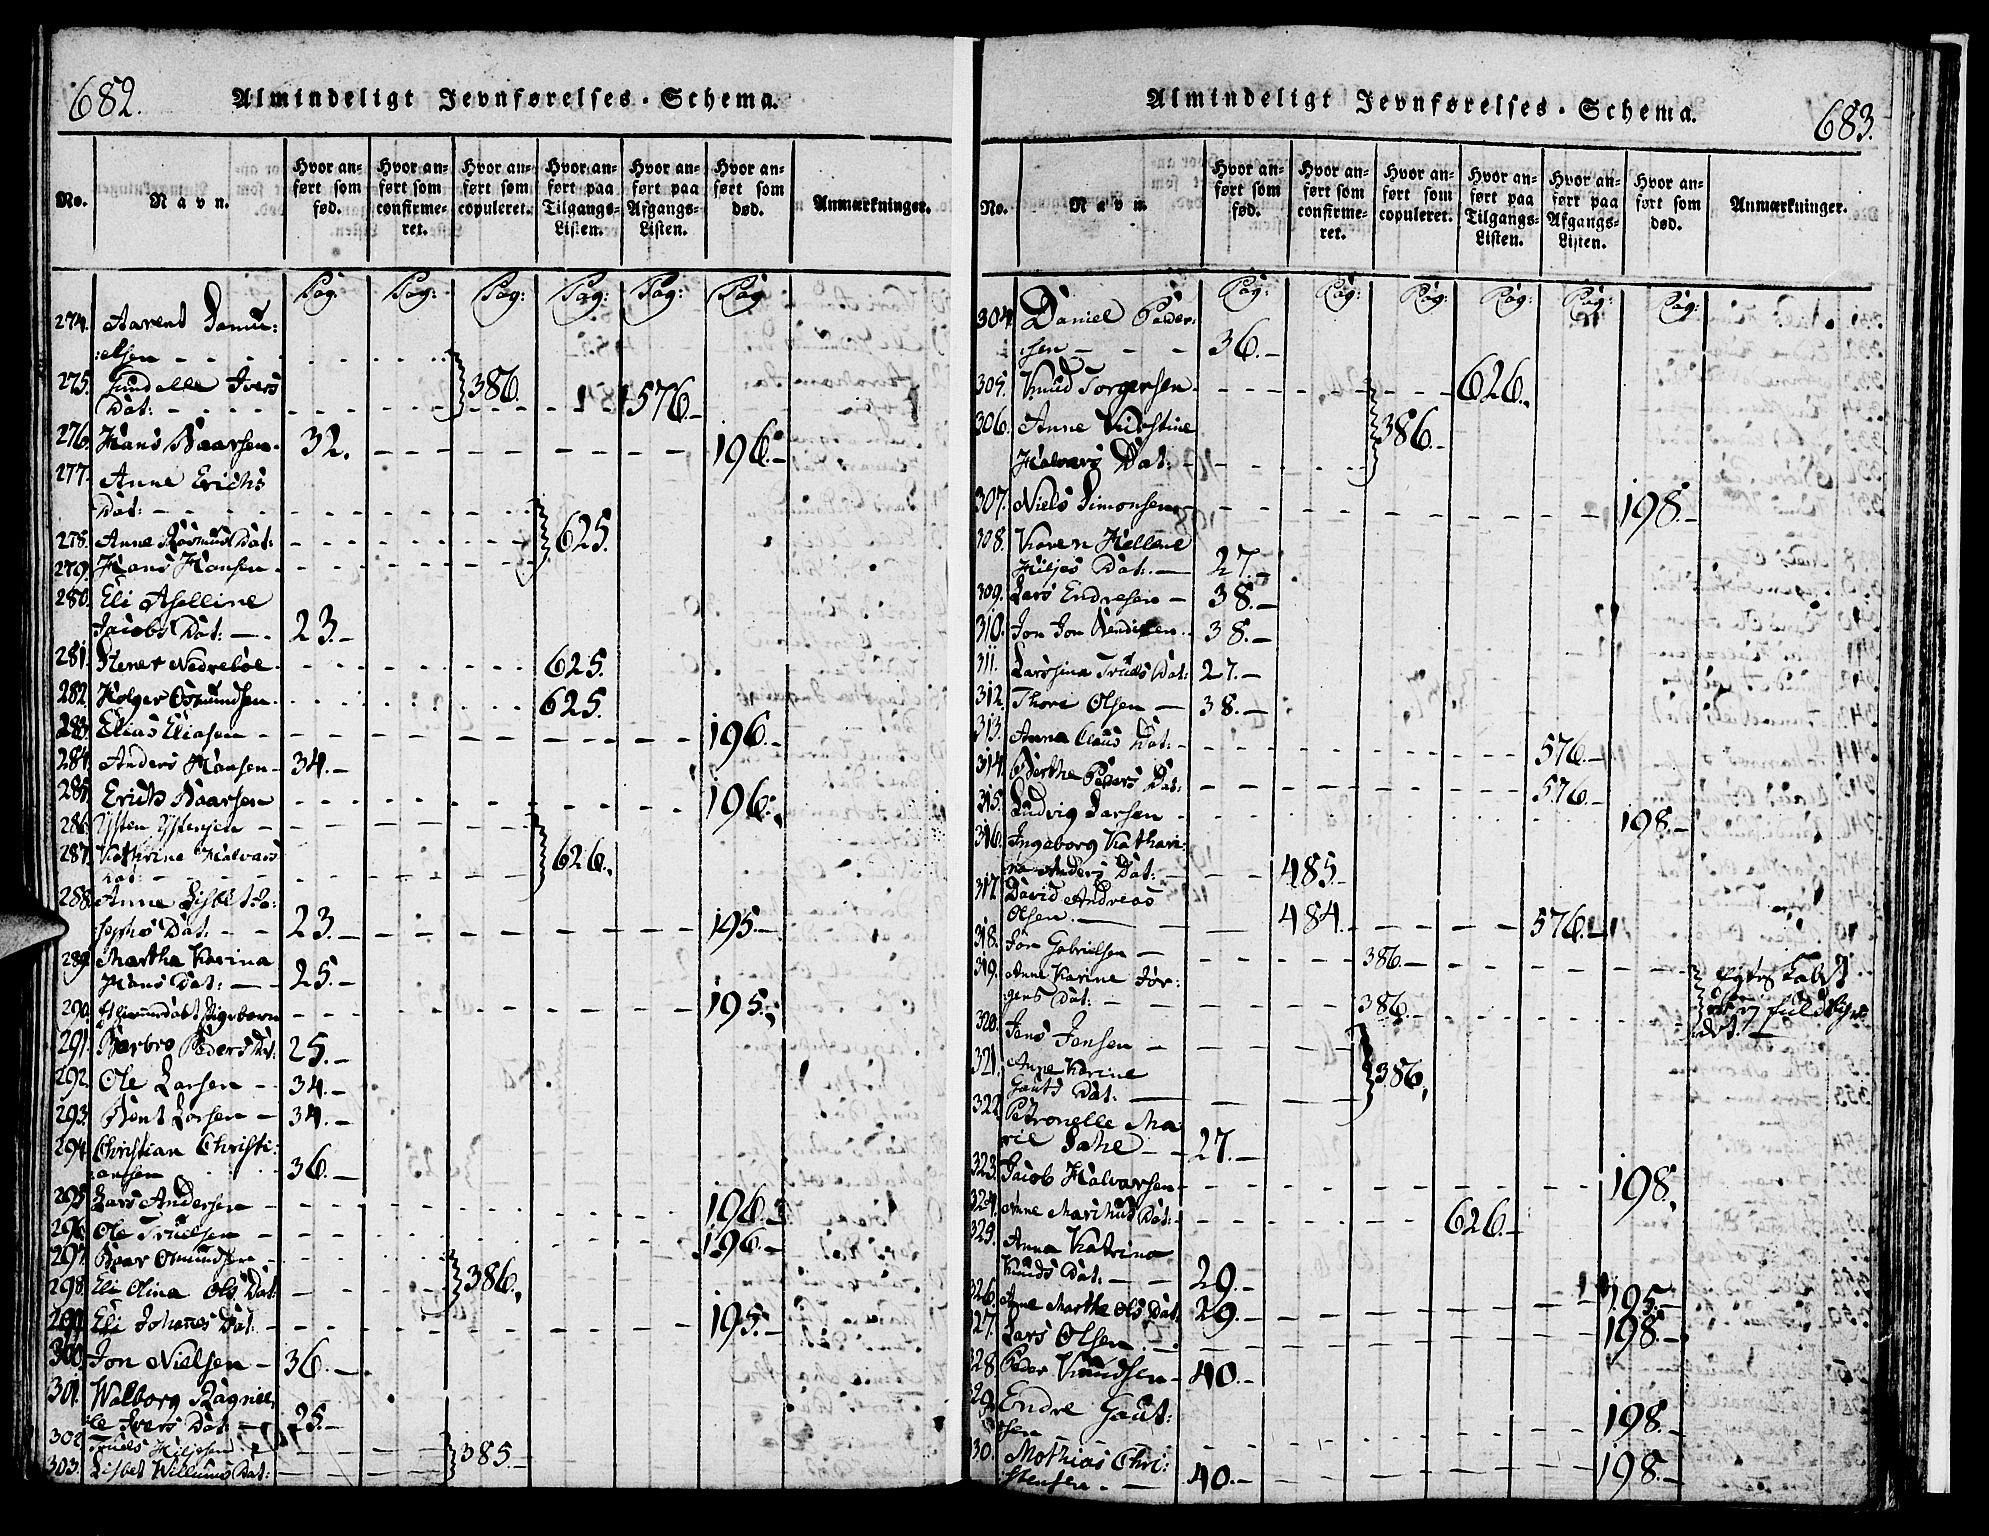 682.
Almindeligt Jevnførelses-Schema.
No.
Navn.
Hvor anført som fød.
Hvor anført som confirmeret.
Hvor anført som copuleret.
Hvor anført paa Tilgangs-Listen.
Hvor anført paa Afgangs-Listen.
Hvor anført som død.
Anmærkninger.
Pag: Pag: Pag: Pag: Pag: Pag:
274. Aarent Samu:
:elsen - - - -
275. Gundelle Ivers
Dat: - - - 386. 576.-
276. Hans Baarsen. 32. - - - 196.-
277. Anne Erichs
Dat: - - -
278. Anne Rasmus Dat: - - - 625.
279. Hans Hansen - - -
280. Eli Aselline
Jacobs Dat: - 23.-
281. Stener Nedrebøe - - - 625.
282. Holger Osmundsen - - - 625.
283. Elias Eliasen - - - 196.-
284. Anders Hansen - 34.-
285. Erich Baarsen - - - 196.
286. Ysten Ystensen - - -
287. Kathrine Halvars
Dat: - - - 626.
288. Anne Lisbet Jo:
:sephs Dat: - - 23.- - - 195.-
289. Martha Karina
Hans Dat: - - 25.-
290. et Pigebarn - - - 195.
291. Barbro Peders Dat: 25.-
292. Ole Larsen - - 34.-
293. Bent Larsen - 34.-
294. Christian Christi:
:ansen 36.-
295. Lars Andersen - - - 196.
296. Ole Truelsen - - - 196.-
297. Baar Osmundsen -
298. Eli Olina Ols Dat: - - - 386.
299. Eli Johannes Dat. - - - 195.-
300. Jon Nielsen - 36.-
301. Walborg Ragniel:
:le Ivers Dat: - 25.-
302. Truels Kiljesen - - -
303. Lisbet Willums Dat: - - - 385.-
Almindeligt Jevnførelses-Schema.
683.
No.
Navn.
Hvor anført som fød.
Hvor anført som confirmeret.
Hvor anført som copuleret.
Hvor anført paa Tilgangs-Listen.
Hvor anført paa Afgangs-Listen.
Hvor anført som død.
Anmærkninger.
Pag: Pag: Pag: Pag: Pag: Pag:
304. Daniel Peder:
:sen - - - 36.-
305. Knud Torgersen - - - 626.
306. Anne Kirstine
Halvars Dat: - - - 386.-
307. Niels Simonsen - - - 198.-
308. Karen Hellene
Kiljes Dat: - 27.-
309. Lars Endresen - 38.-
310. Jon Jon 38.-
311. Larsina Truels Dat: 27.-
312. Thore Olsen - 38.-
313. Anna Claus Dat: - - - 576.-
314. Berthe Peders Dat: - - - 576.-
315. Ludvig Larsen - - - 198.-
316. Ingeborg Kathari:
:na Anders Dat: - - 485.-
317. David Andreas
Olsen. - - 484. - - - 576.-
318. Jon Gabrielsen - - - 386.-
319. Anne Karine Jør:
:gens Dat: - - - 386. - - -
320. Jens Jensen - - -
321. Anne Karine
Gauts Dat: - - - 386.
322. Petronelle Ma:
rie Sahl - - 27.-
323. Jacob Halvarsen - - - 198.
324. Anne Marthe Dat: - - - 626.-
325. Anna Katrina
Knuds Dat: - - 29.-
326. Ane Marthe Ols Dat: 29.- - - 195.-
27. Lars Olsen - - - 198.-
28. Peder Knudsen - 40.-
29. Endre Gaut:
:sen - - - 198.-
30. Mathias Chri:
:stensen - - 40.- 198.-